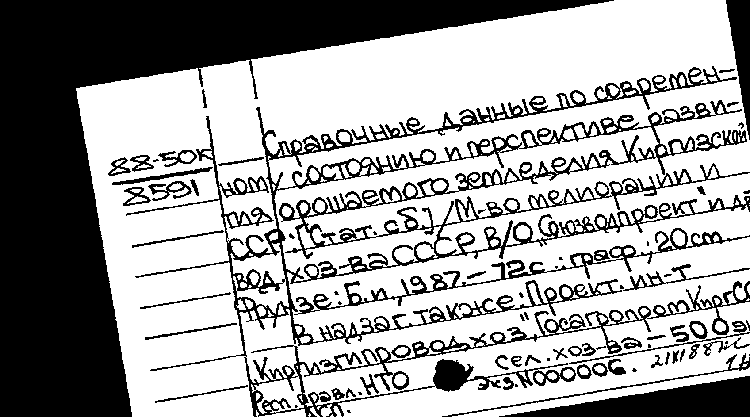 88-50К
8591
Справочные данные по современ-
ному состоянию и перспективе разви-
тия орошаемого земледелия Киргизской
ССР: [Стат. сб.] / М-во мелиорации и
вод. хоз-ва СССР, В/О "Союзводпроект" и др.
Фрунзе: Б.и., 1987. - 72с.: граф.; 20см.
В надзаг. также: Проект. ин-т
"Киргизгипроводхоз", Госагропром КиргСС
Респ. правл. НТО сел. хоз-ва. - 50 э
Экз. N000006.